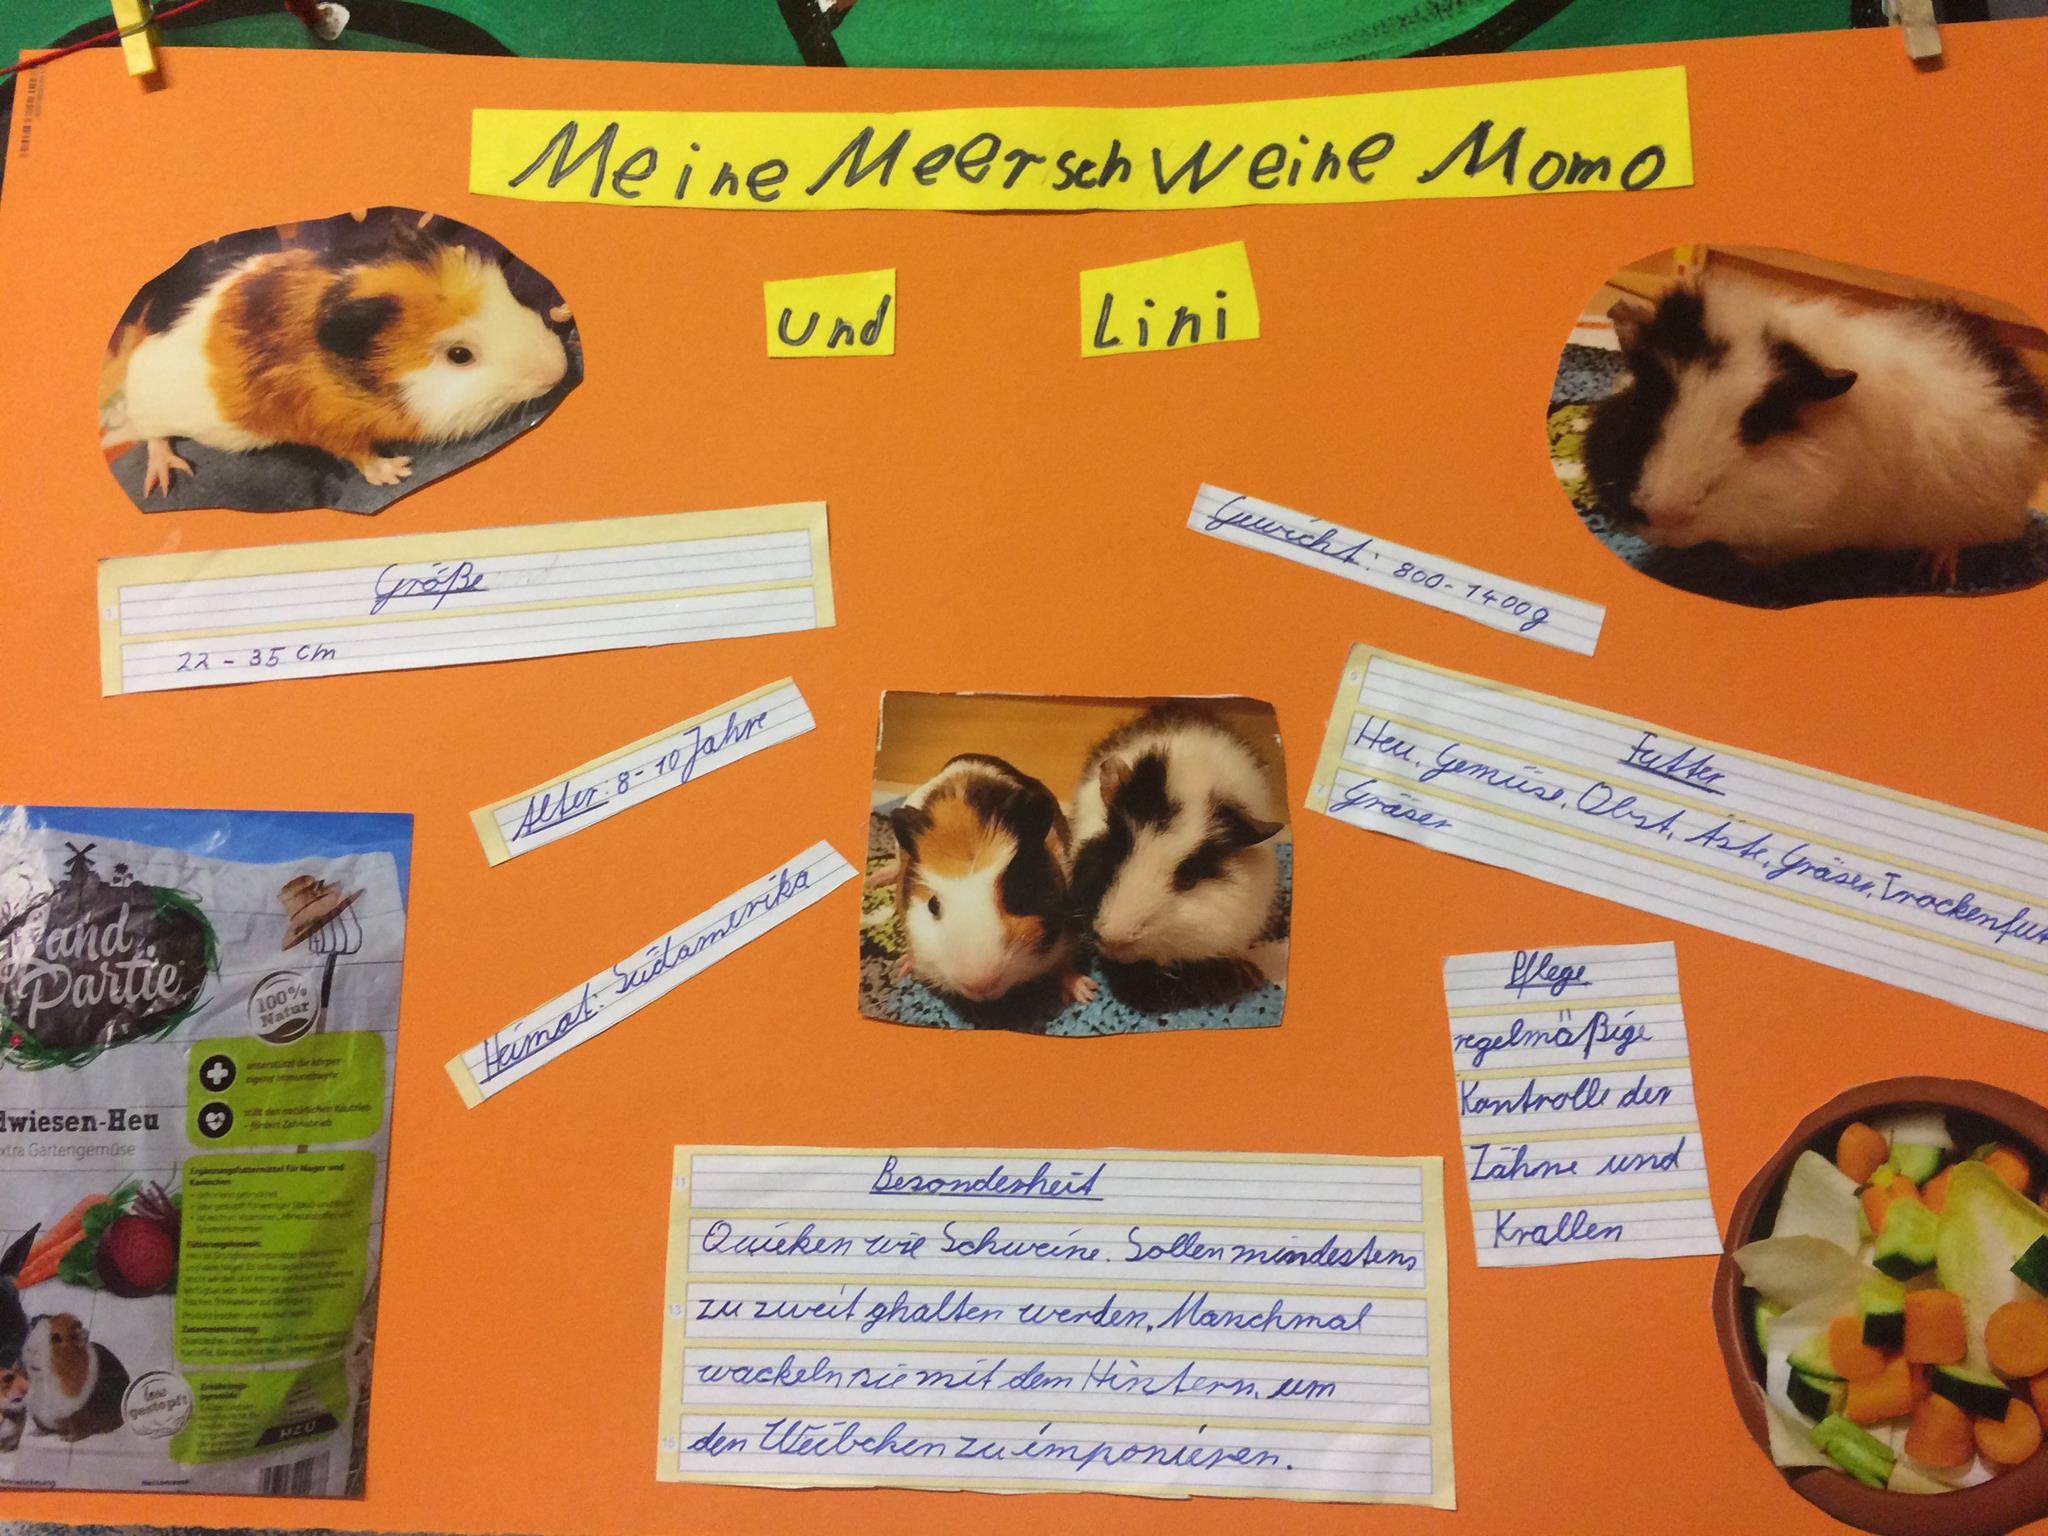 Meine Meerschweine Momo
und Lini
Größe
22 - 35 cm
Gewicht: 800-1400g
Alter: 8-10 Jahre
Futter
Heu, Gemüse, Obst, Äste, Gräser, Trockenfut
Gräser
Heimat: Südamerika
Pflege
regelmäßige
Kontrolle der
Zähne und
Krallen
Besonderheit
Quieken wie Schweine. Sollen mindestens
zu zweit ghalten werden. Manchmal
wackeln sie mit dem Hintern, um
den Weibchen zu imponieren.
Land
Partie
100%
Natur
dwiesen-Heu
xtra Gartengemüse
unterstützt die körper
eigene Immunabwehr
stillt den natürlichen Nagetrieb
- fördert Zahnabrieb
Ergänzungsfuttermittel für Nager und
Kaninchen
Fütterungshinweis:
Zusammensetzung:
lose
gestopft
Ernährungs-
pyramide
HEU